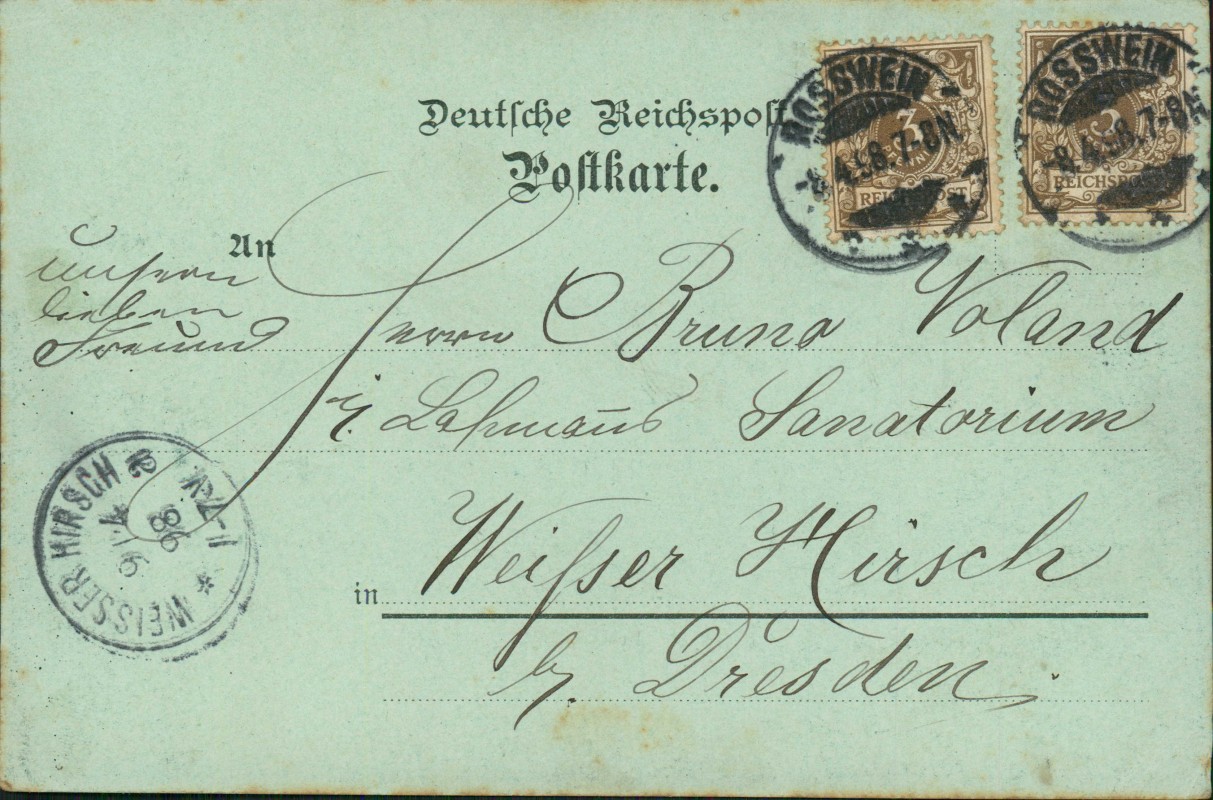 Deutsche Reichspost
Postkarte.
ROSSWEIN
8.4.98.7-8N.
3
REICHSPOST
ROSSWEIN
8.4.98.7-8N.
3
REICHSPOST
An
unsern
lieben
Freund
Herrn Bruno Voland
Lahmanns Sanatorium
in Weißer Hirsch
b/. Dresden.
WEISSER HIRSCH
9.4.
98